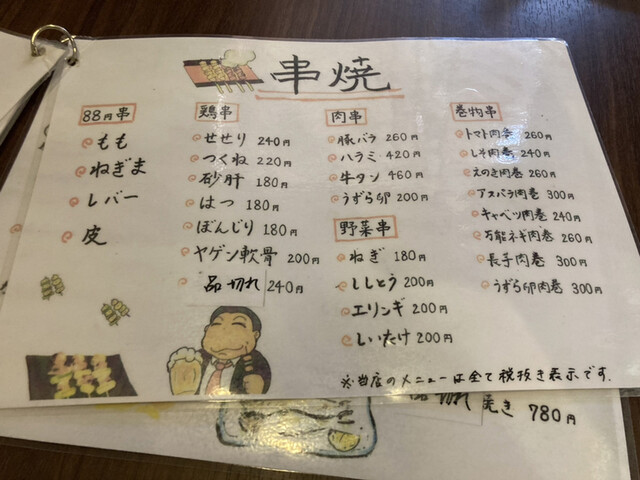 串焼
88円串
もも
ねぎま
レバー
皮
鶏串
せせり 240円
つくね 220円
砂肝 180円
はつ 180円
ぼんじり 180円
ヤゲン軟骨 200円
品切れ 240円
肉串
豚バラ 260円
ハラミ 420円
牛タン 460円
うずら卵 200円
野菜串
ねぎ 180円
ししとう 200円
エリンギ 200円
しいたけ 200円
巻物串
トマト肉巻 260円
しそ肉巻 240円
えのき肉巻 260円
アスパラ肉巻 300円
キャベツ肉巻 240円
万能ネギ肉巻 260円
長芋肉巻 300円
うずら卵肉巻 300円
※当店のメニューは全て税抜き表示です.
品切れ 焼き 780円